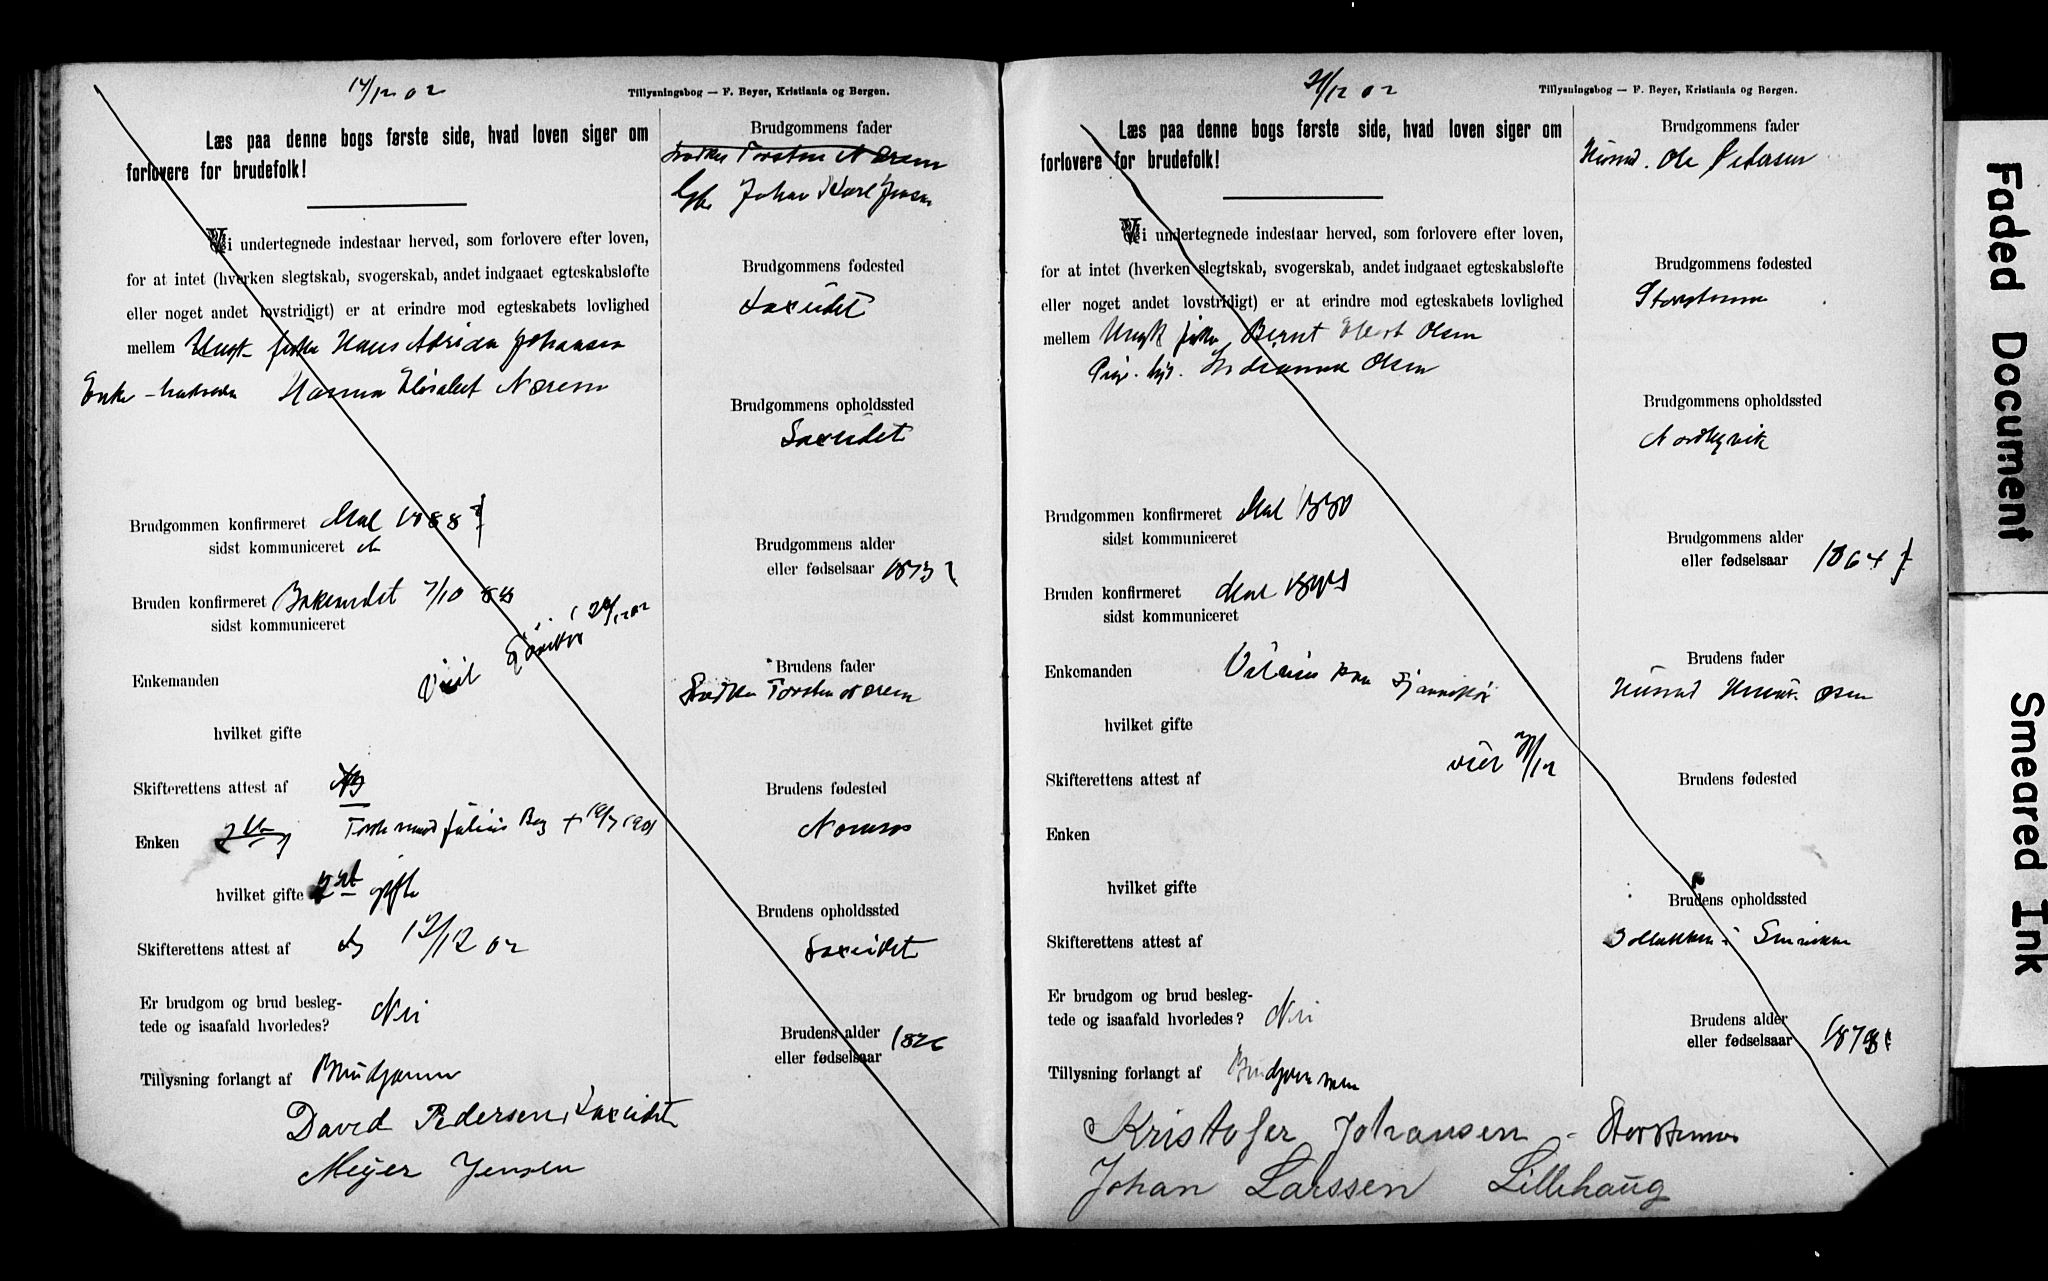 14/12 02
Tillysningsbog — F. Beyer, Kristiania og Bergen.
Læs paa denne bogs første side, hvad loven siger om
forlovere for brudefolk!
Vi undertegnede indestaar herved, som forlovere efter loven,
for at intet (hverken slegtskab, svogerskab, andet indgaaet egteskabsløfte
eller noget andet lovstridigt) er at erindre mod egteskabets lovlighed
mellem Ungk. fisker Hans Adrian Johansen
Enke Hanna Elisabet Nærem
Brudgommen konfirmeret Mal 1888
sidst kommuniceret
Bruden konfirmeret 7/10 88
sidst kommuniceret
Enkemanden Viet 28/12 02
hvilket gifte
Skifterettens attest af
Enken Julius Berg + 19/7 1901
hvilket gifte 2det gifte
Skifterettens attest af 12/12 02
Er brudgom og brud besleg-
tede og isaafald hvorledes? Nei
Tillysning forlangt af Brudgommen
David Pedersen, Laxeidet
Meyer Jensen
Brudgommens fader
Torsten Nærem
Johan Karl Jensen
Brudgommens fødested
Laxeidet
Brudgommens opholdssted
Laxeidet
Brudgommens alder
eller fødselsaar 1873
Brudens fader
Torsten Nærem
Brudens fødested
Brudens opholdssted
Laxeidet
Brudens alder
eller fødselsaar
21/12 02
Tillysningsbog — F. Beyer, Kristiania og Bergen.
Læs paa denne bogs første side, hvad loven siger om
forlovere for brudefolk!
Vi undertegnede indestaar herved, som forlovere efter loven,
for at intet (hverken slegtskab, svogerskab, andet indgaaet egteskabsløfte
eller noget andet lovstridigt) er at erindre mod egteskabets lovlighed
mellem Ungk. fisker Bernt Olsen
Pige Indianna Olsen
Brudgommen konfirmeret Mal 1880
sidst kommuniceret
Bruden konfirmeret Mal
sidst kommuniceret
Enkemanden
hvilket gifte
viet
Skifterettens attest af
Enken
hvilket gifte
Skifterettens attest af
Er brudgom og brud besleg-
tede og isaafald hvorledes? Nei
Tillysning forlangt af Brudgommen
Kristofer Johansen - Storstennes
Johan Larssen Lillehaug
Brudgommens fader
Husmd. Ole Pedersen
Brudgommens fødested
Storstennes
Brudgommens opholdssted
Nordkjvik
Brudgommens alder
eller fødselsaar 1864
Brudens fader
Husmd Olsen
Brudens fødested
Brudens opholdssted
Brudens alder
eller fødselsaar 1878
Faded Document
Smeared Ink